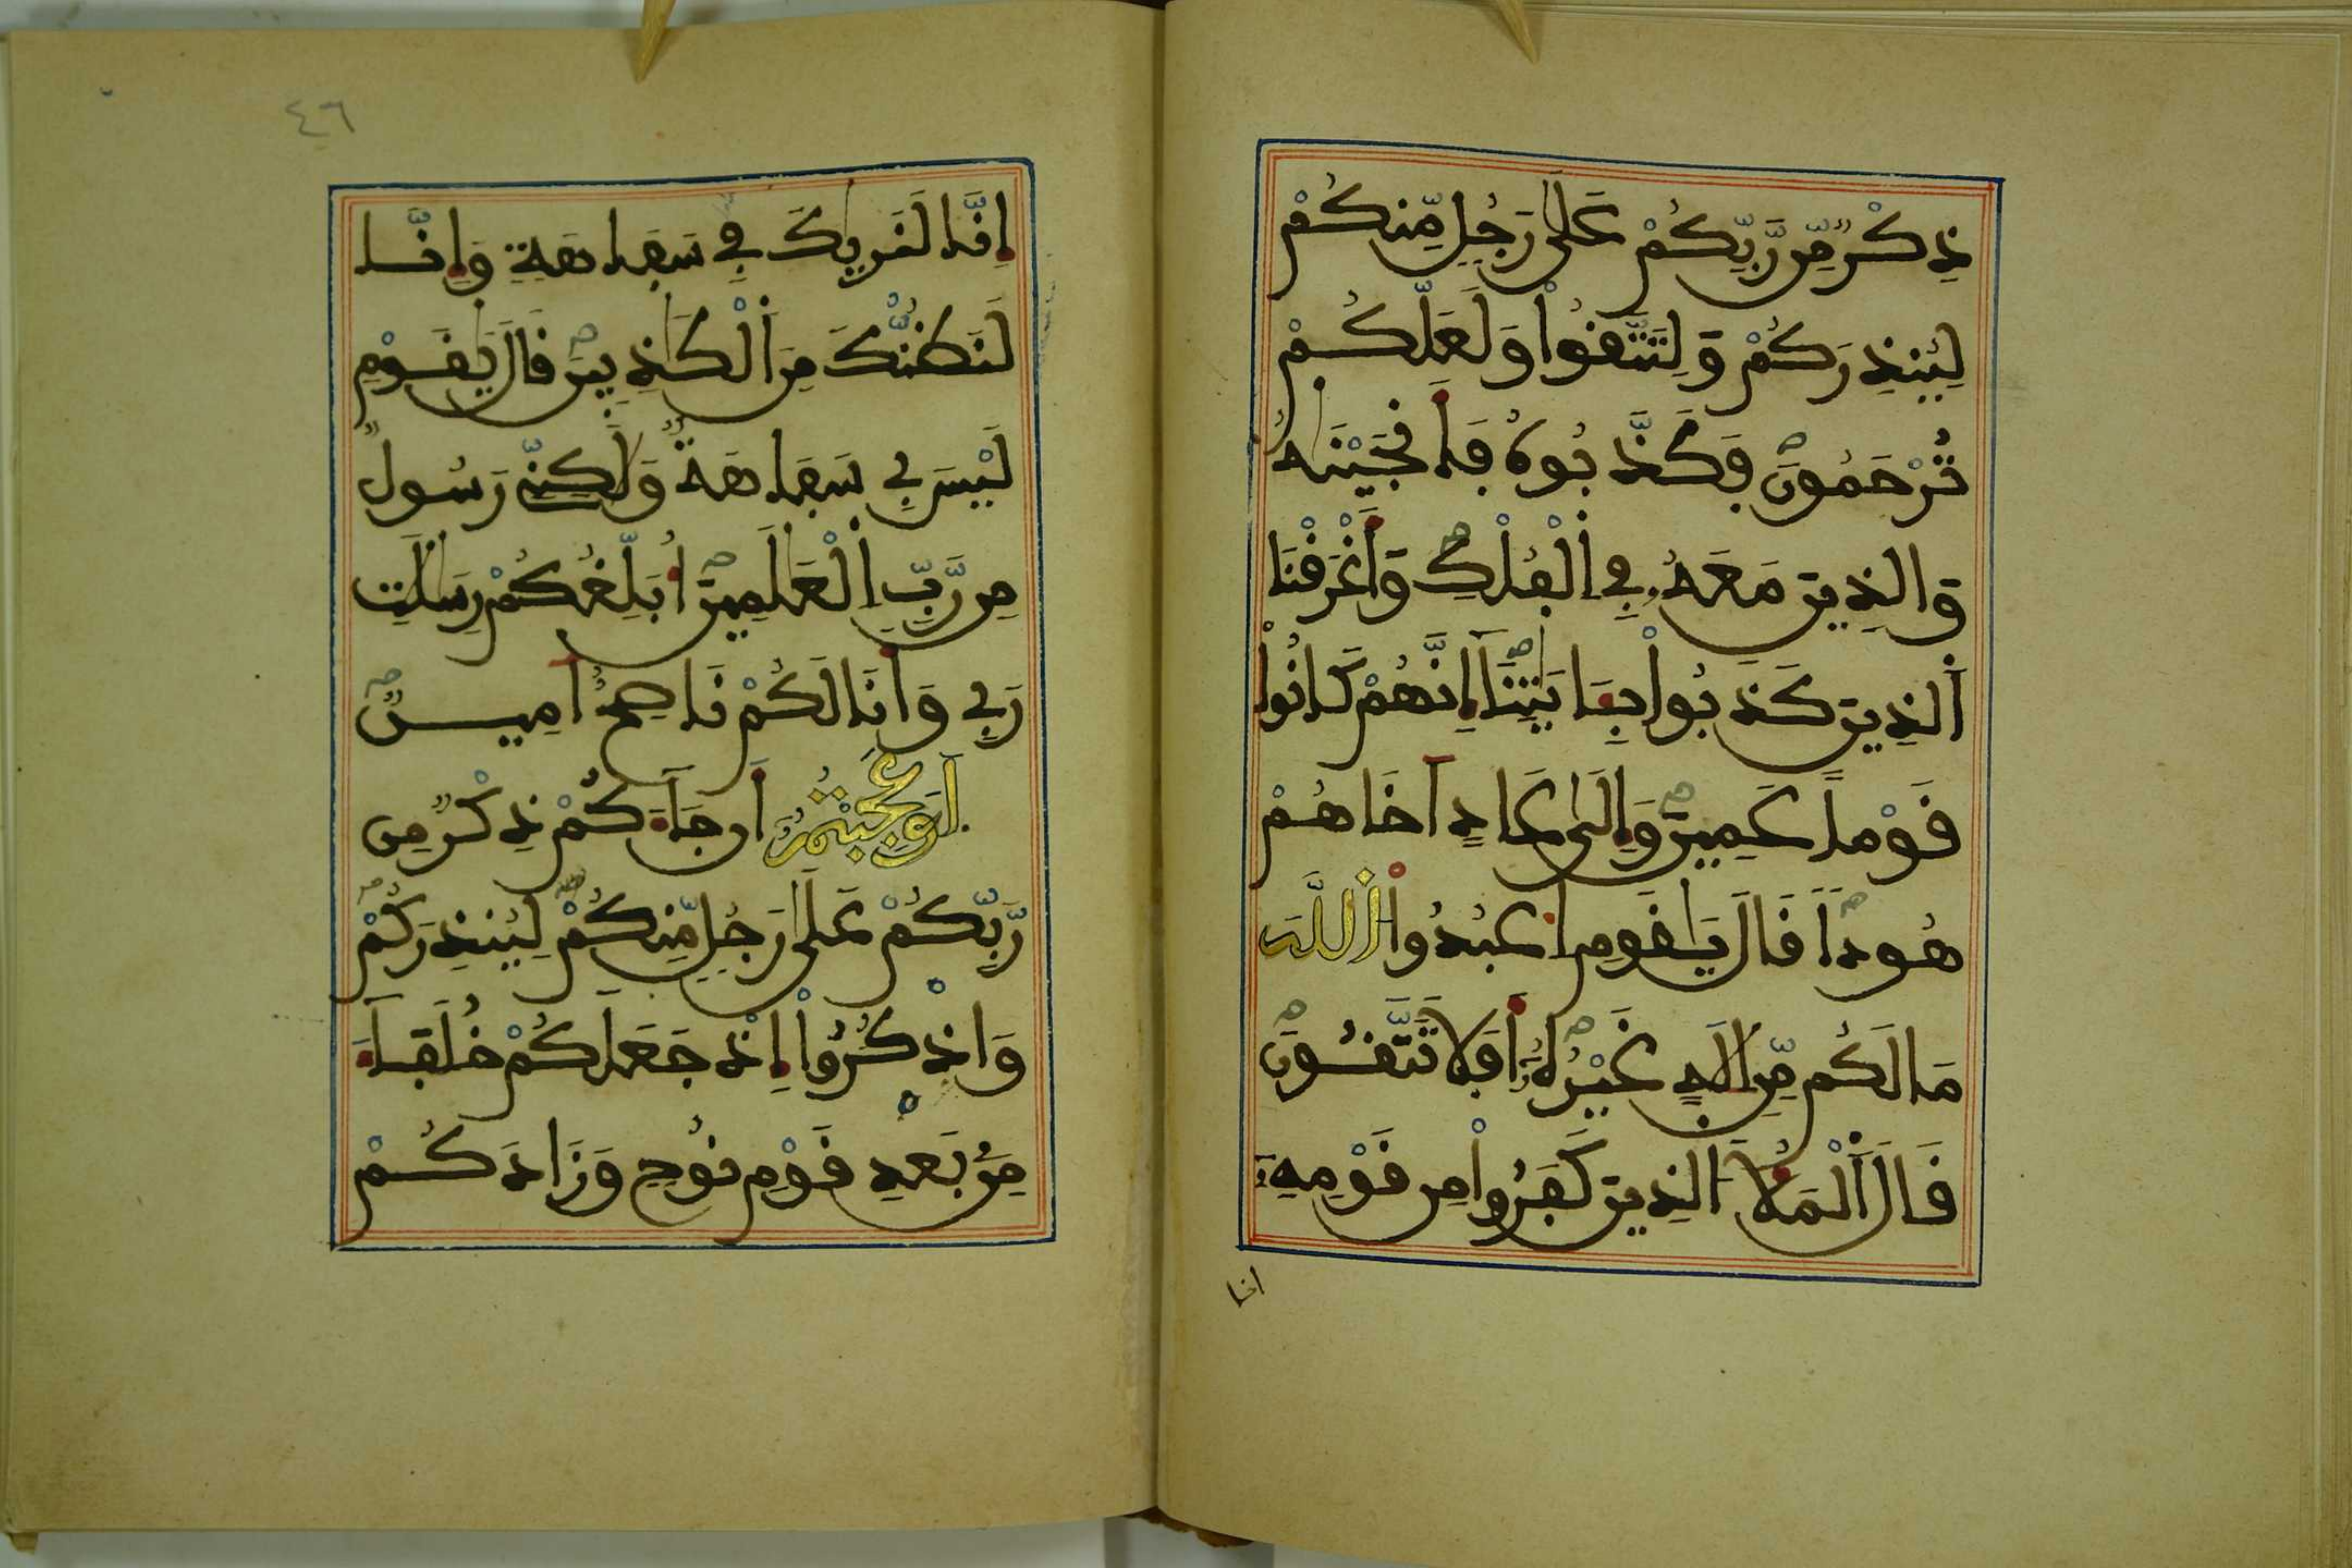 ذِكْرٌ مِّن رَّبِّكُمْ عَلَىٰ رَجُلٍ مِّنكُمْ
لِيُنذِرَكُمْ وَلِتَتَّقُوا۟ وَلَعَلَّكُمْ
تُرْحَمُونَ فَكَذَّبُوهُ فَأَنجَيْنَٰهُ
وَالذِينَ مَعَهُۥ فِي اَ۬لْفُلْكِ وَأَغْرَقْنَا
اَ۬لذِينَ كَذَّبُوا۟ بِـَٔايَٰتِنَآ إِنَّهُمْ كَانُوا۟
قَوْماً عَمِينَ وَإِلَىٰ عَادٍ اَخَاهُمْ
هُوداً قَالَ يَٰقَوْمِ اِ۟عْبُدُوا۟ اُ۬للَّهَ
مَا لَكُم مِّنِ اِلَٰهٍ غَيْرُهُۥٓ أَفَلَا تَتَّقُونَ
قَالَ اَ۬لْمَلَأُ الذِينَ كَفَرُوا۟ مِن قَوْمِهِۦٓ
انا
٤٦
إِنَّا لَنَرَىٰكَ فِي سَفَاهَةٍ وَإِنَّا
لَنَظُنُّكَ مِنَ اَ۬لْكَٰذِبِينَ قَالَ يَٰقَوْمِ
لَيْسَ بِي سَفَاهَةٌ وَلَٰكِنِّي رَسُولٌ
مِّن رَّبِّ اِ۬لْعَٰلَمِينَ أُبَلِّغُكُمْ رِسَٰلَٰتِ
رَبِّي وَأَنَا لَكُمْ نَاصِحٌ اَمِينٌ
اَوَعَجِبْتُمُۥٓ أَن جَآءَكُمْ ذِكْرٌ مِّن
رَّبِّكُمْ عَلَىٰ رَجُلٍ مِّنكُمْ لِيُنذِرَكُمْ
وَاذْكُرُوٓا۟ إِذْ جَعَلَكُمْ خُلَفَآءَ
مِنۢ بَعْدِ قَوْمِ نُوحٍ وَزَادَكُمْ